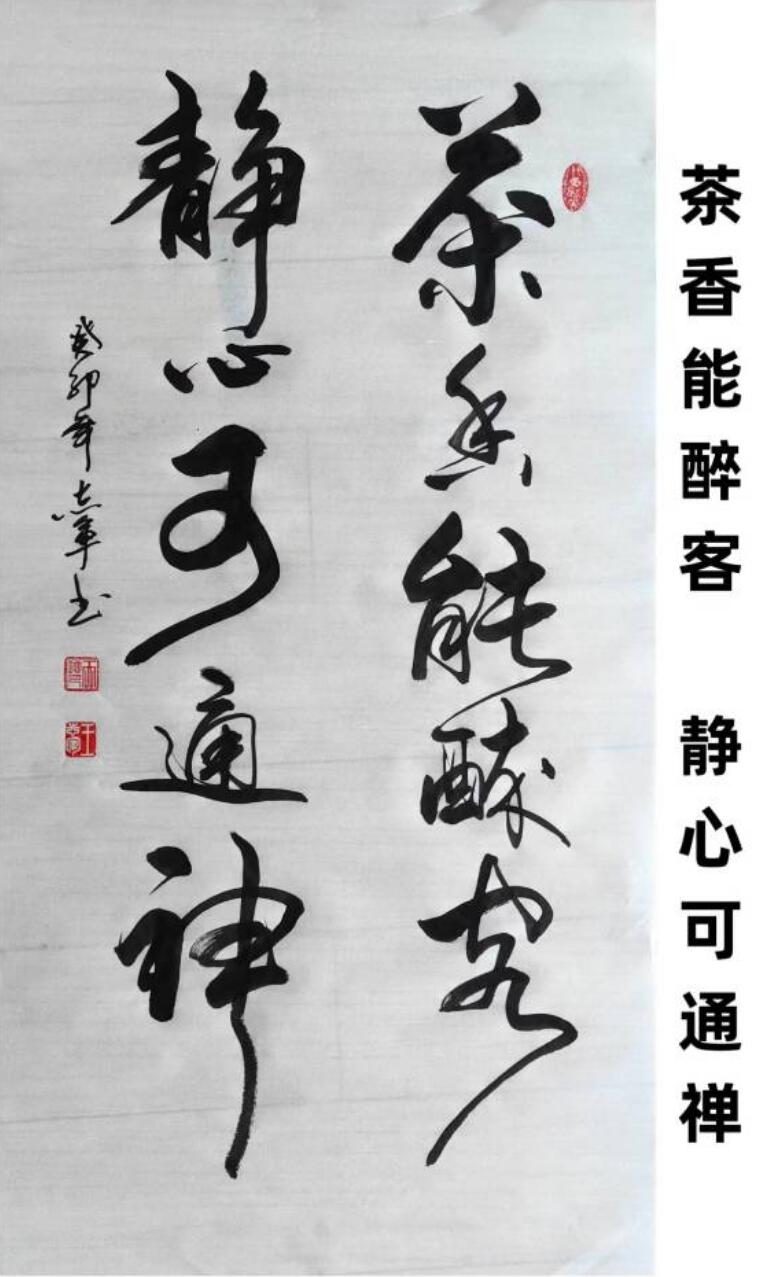 茶香能醉客 静心可通禅
茶香能醉客
静心可通神
癸卯年志军书